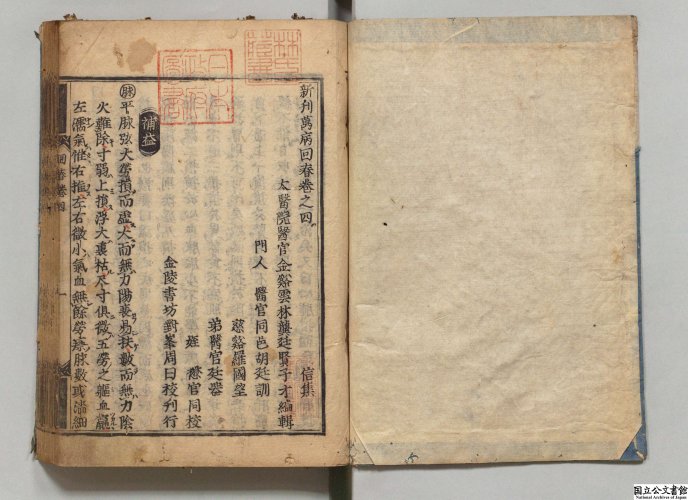 新刋萬病回春卷之四
太醫院醫官金谿雲林龔廷賢子才編輯
門人 醫官同邑胡廷訓
慈谿羅國望
弟醫官廷器
姪 懋官同校
金陵書坊對峯周曰校刊行
補益
脉平脉弦大勞損而虛大而無力陽衰易扶數而無力陰
火難除寸弱上損浮大裏枯尺寸俱微五勞之軀血羸
左濡氣怯右推左右微小氣血無餘勞瘵脉數或濇細
回春卷四
日本
政府
圖書
信集
国立公文書館
National Archives of Japan